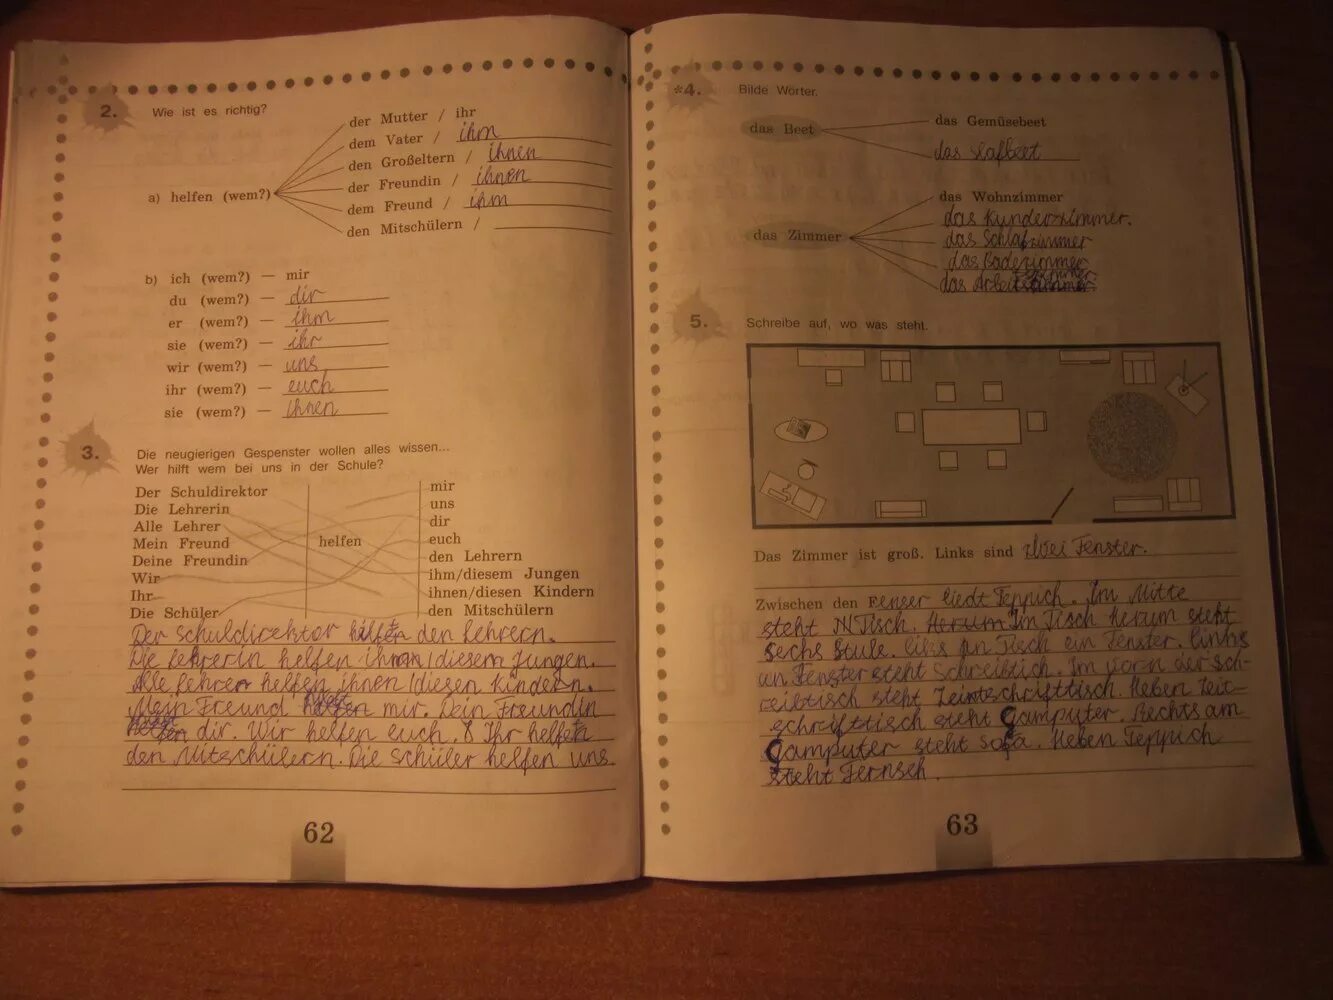 2. Wie ist es richtig?
der Mutter / ihr
dem Vater / ihm
den Großeltern / ihnen
a) helfen (wem?)
der Freundin / ihnen
dem Freund / ihm
den Mitschülern /
b) ich (wem?) — mir
du (wem?) — dir
er (wem?) — ihm
sie (wem?) — ihr
wir (wem?) — uns
ihr (wem?) — euch
sie (wem?) — ihnen
3. Die neugierigen Gespenster wollen alles wissen...
Wer hilft wem bei uns in der Schule?
Der Schuldirektor
Die Lehrerin
Alle Lehrer
Mein Freund
Deine Freundin
Wir
Ihr
Die Schüler
helfen
mir
uns
dir
euch
den Lehrern
ihm/diesem Jungen
ihnen/diesen Kindern
den Mitschülern
Der Schuldirektor den Lehrern.
Die Lehrerin helfen /diesem Jungen.
Alle Lehrer helfen ihnen/diesen Kindern.
Mein Freund mir. Dein Freundin
dir. Wir helfen euch. Ihr
den Mitschülern. Die Schüler helfen uns.
62
*4. Bilde Wörter.
das Beet
das Gemüsebeet
das
das Zimmer
das Wohnzimmer
das Kynderzimmer.
das Schlafzimmer
das Badezimmer
das
5. Schreibe auf, wo was steht.
Das Zimmer ist groß. Links sind zwei Fenster.
Zwischen den Fenser liedt Teppich. Im Mitte
steht Tisch. Im Tisch herum steht
sechs Stule. Tisch ein Fenster. Links
un Fenster steht Schreibtich. Im vorn der sch-
reibtisch steht Heben Zeit-
schrifttisch steht Camputer. Rechts am
Camputer steht Sofa. Heben Teppich
steht Fernseh.
63